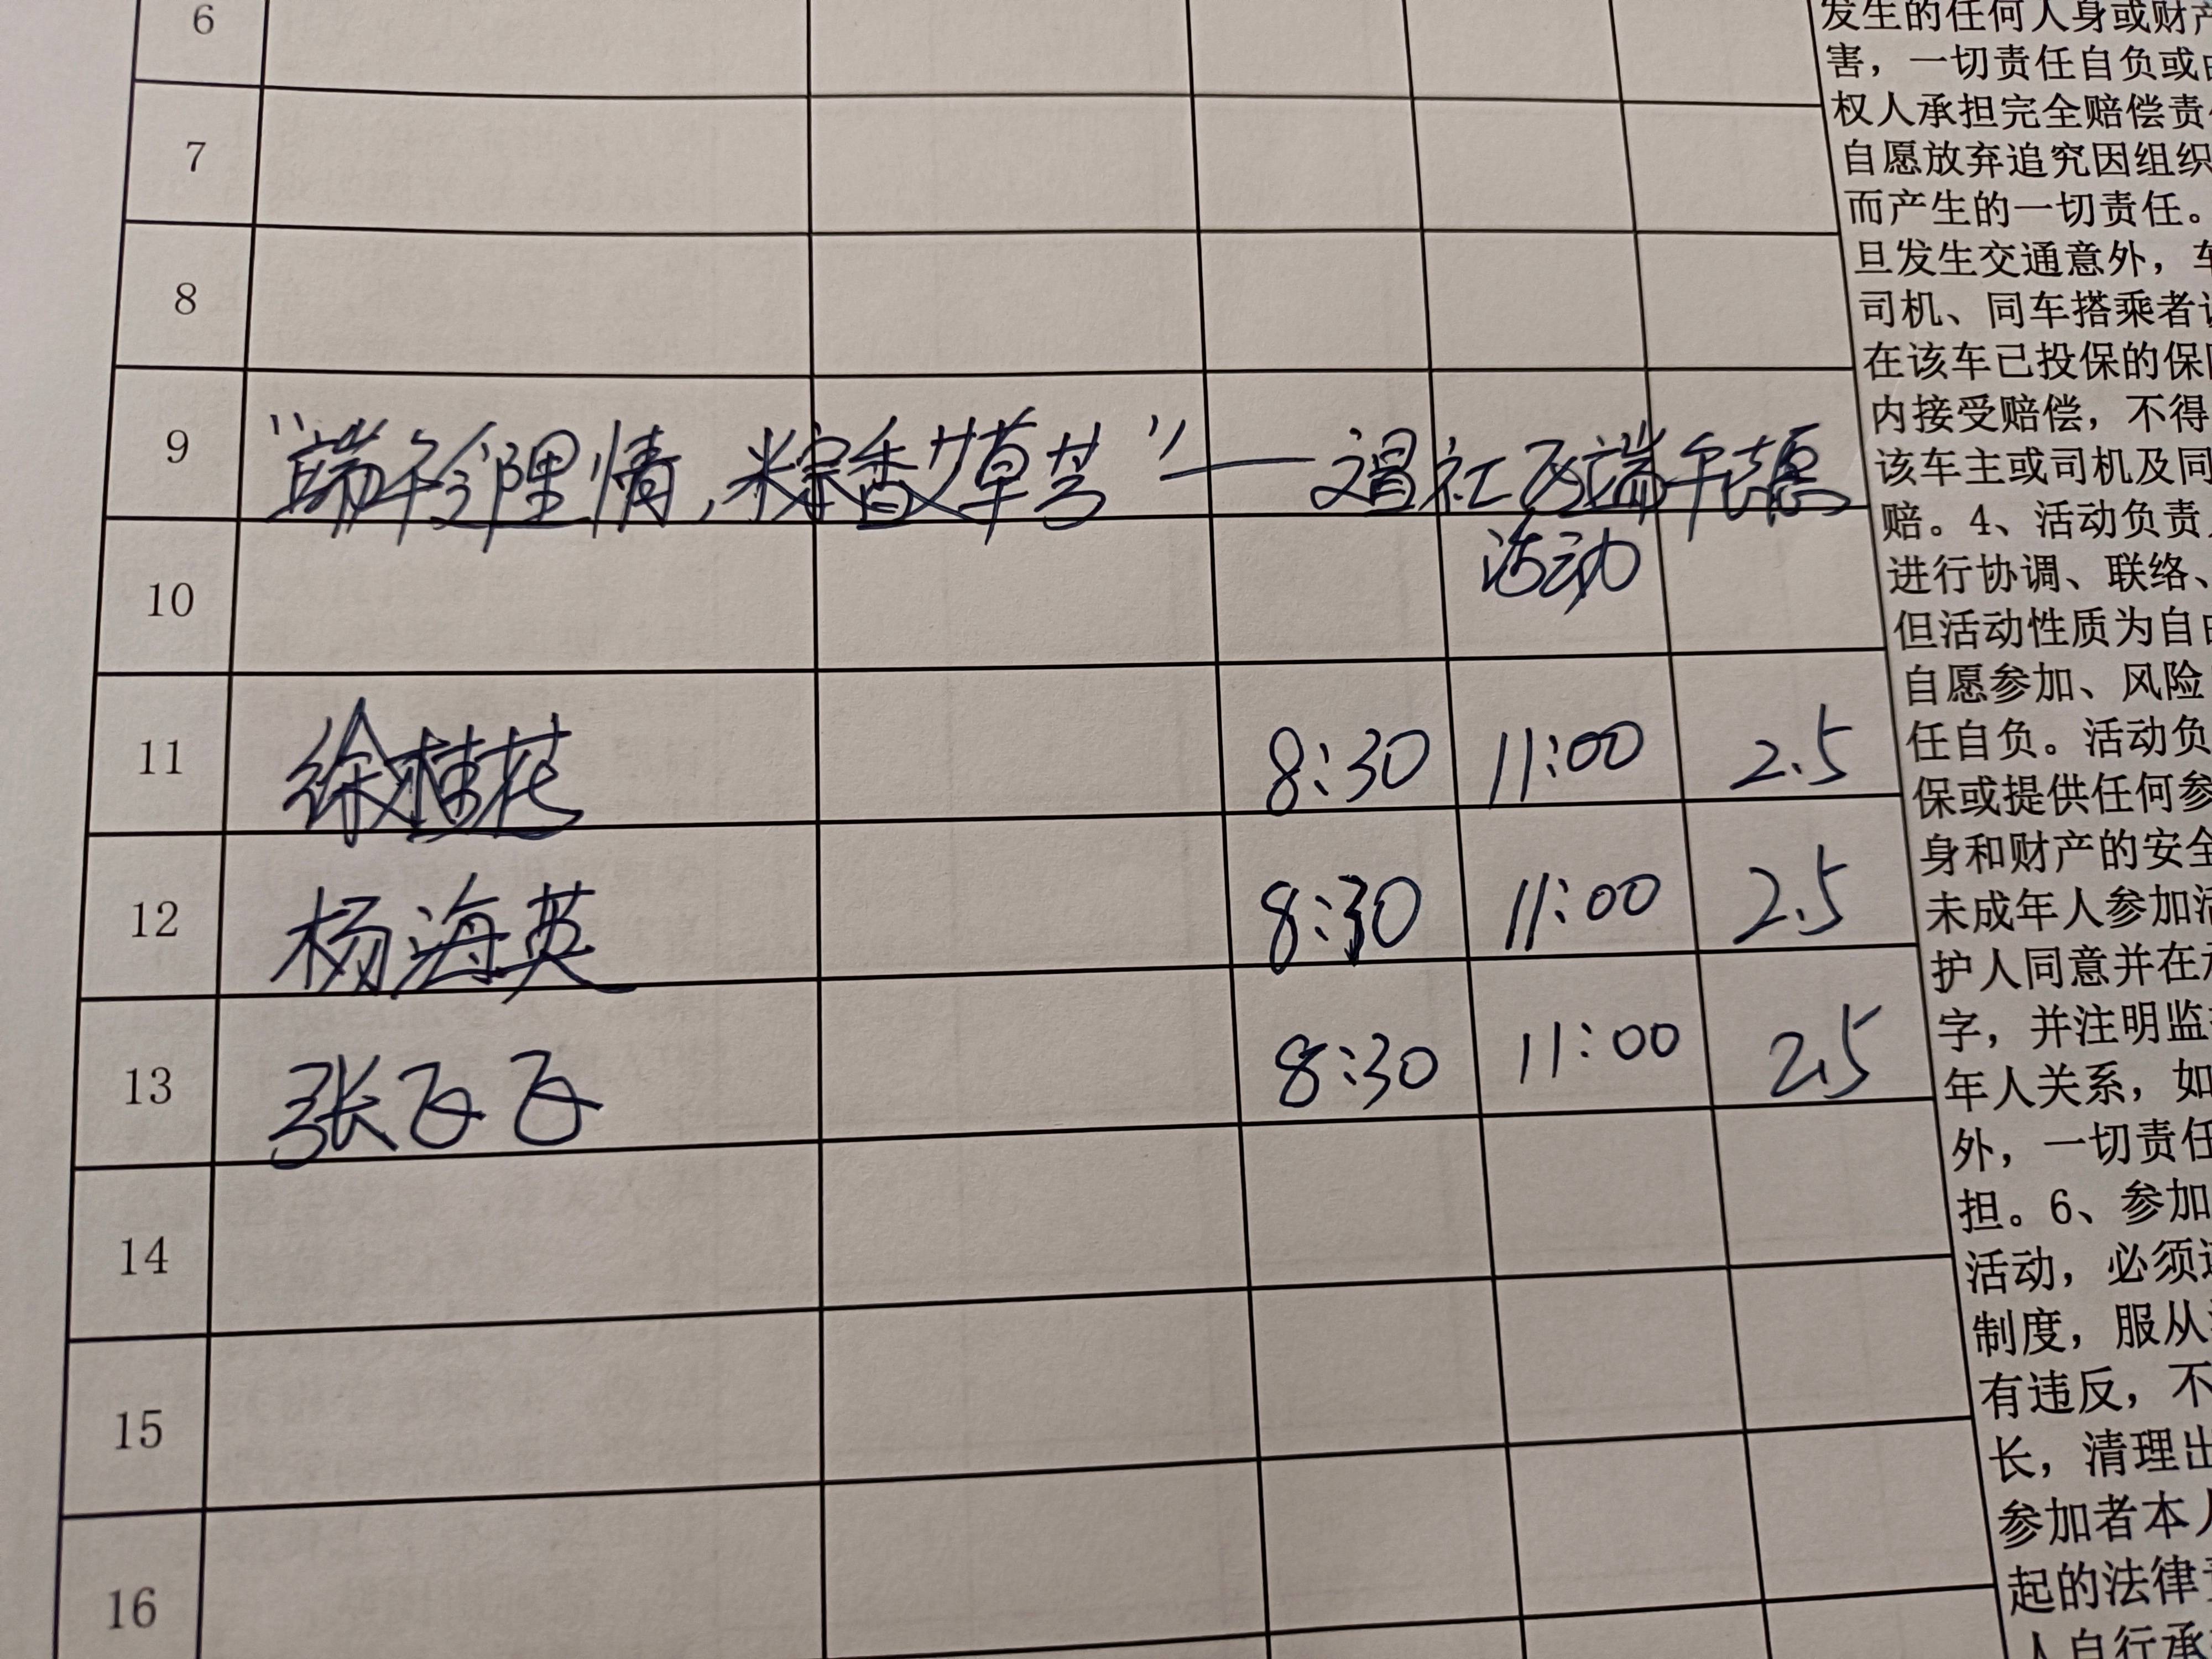 6
7
8
9 “端午邻里情，粽香艾草芳”——文昌社区端午志愿
活动
10
11 徐桂花 8:30 11:00 2.5
12 杨海英 8:30 11:00 2.5
13 张飞飞 8:30 11:00 2.5
14
15
16
发生的任何人身或财产
害，一切责任自负或由
权人承担完全赔偿责任
自愿放弃追究因组织
而产生的一切责任。
旦发生交通意外，车
司机、同车搭乘者
在该车已投保的保
内接受赔偿，不得
该车主或司机及同
赔。4、活动负责
进行协调、联络、
但活动性质为自由
自愿参加、风险
任自负。活动负
保或提供任何参
身和财产的安全
未成年人参加活
护人同意并在
字，并注明监
年人关系，如
外，一切责任
担。6、参加
活动，必须
制度，服从
有违反，不
长，清理出
参加者本人
起的法律责
人自行承